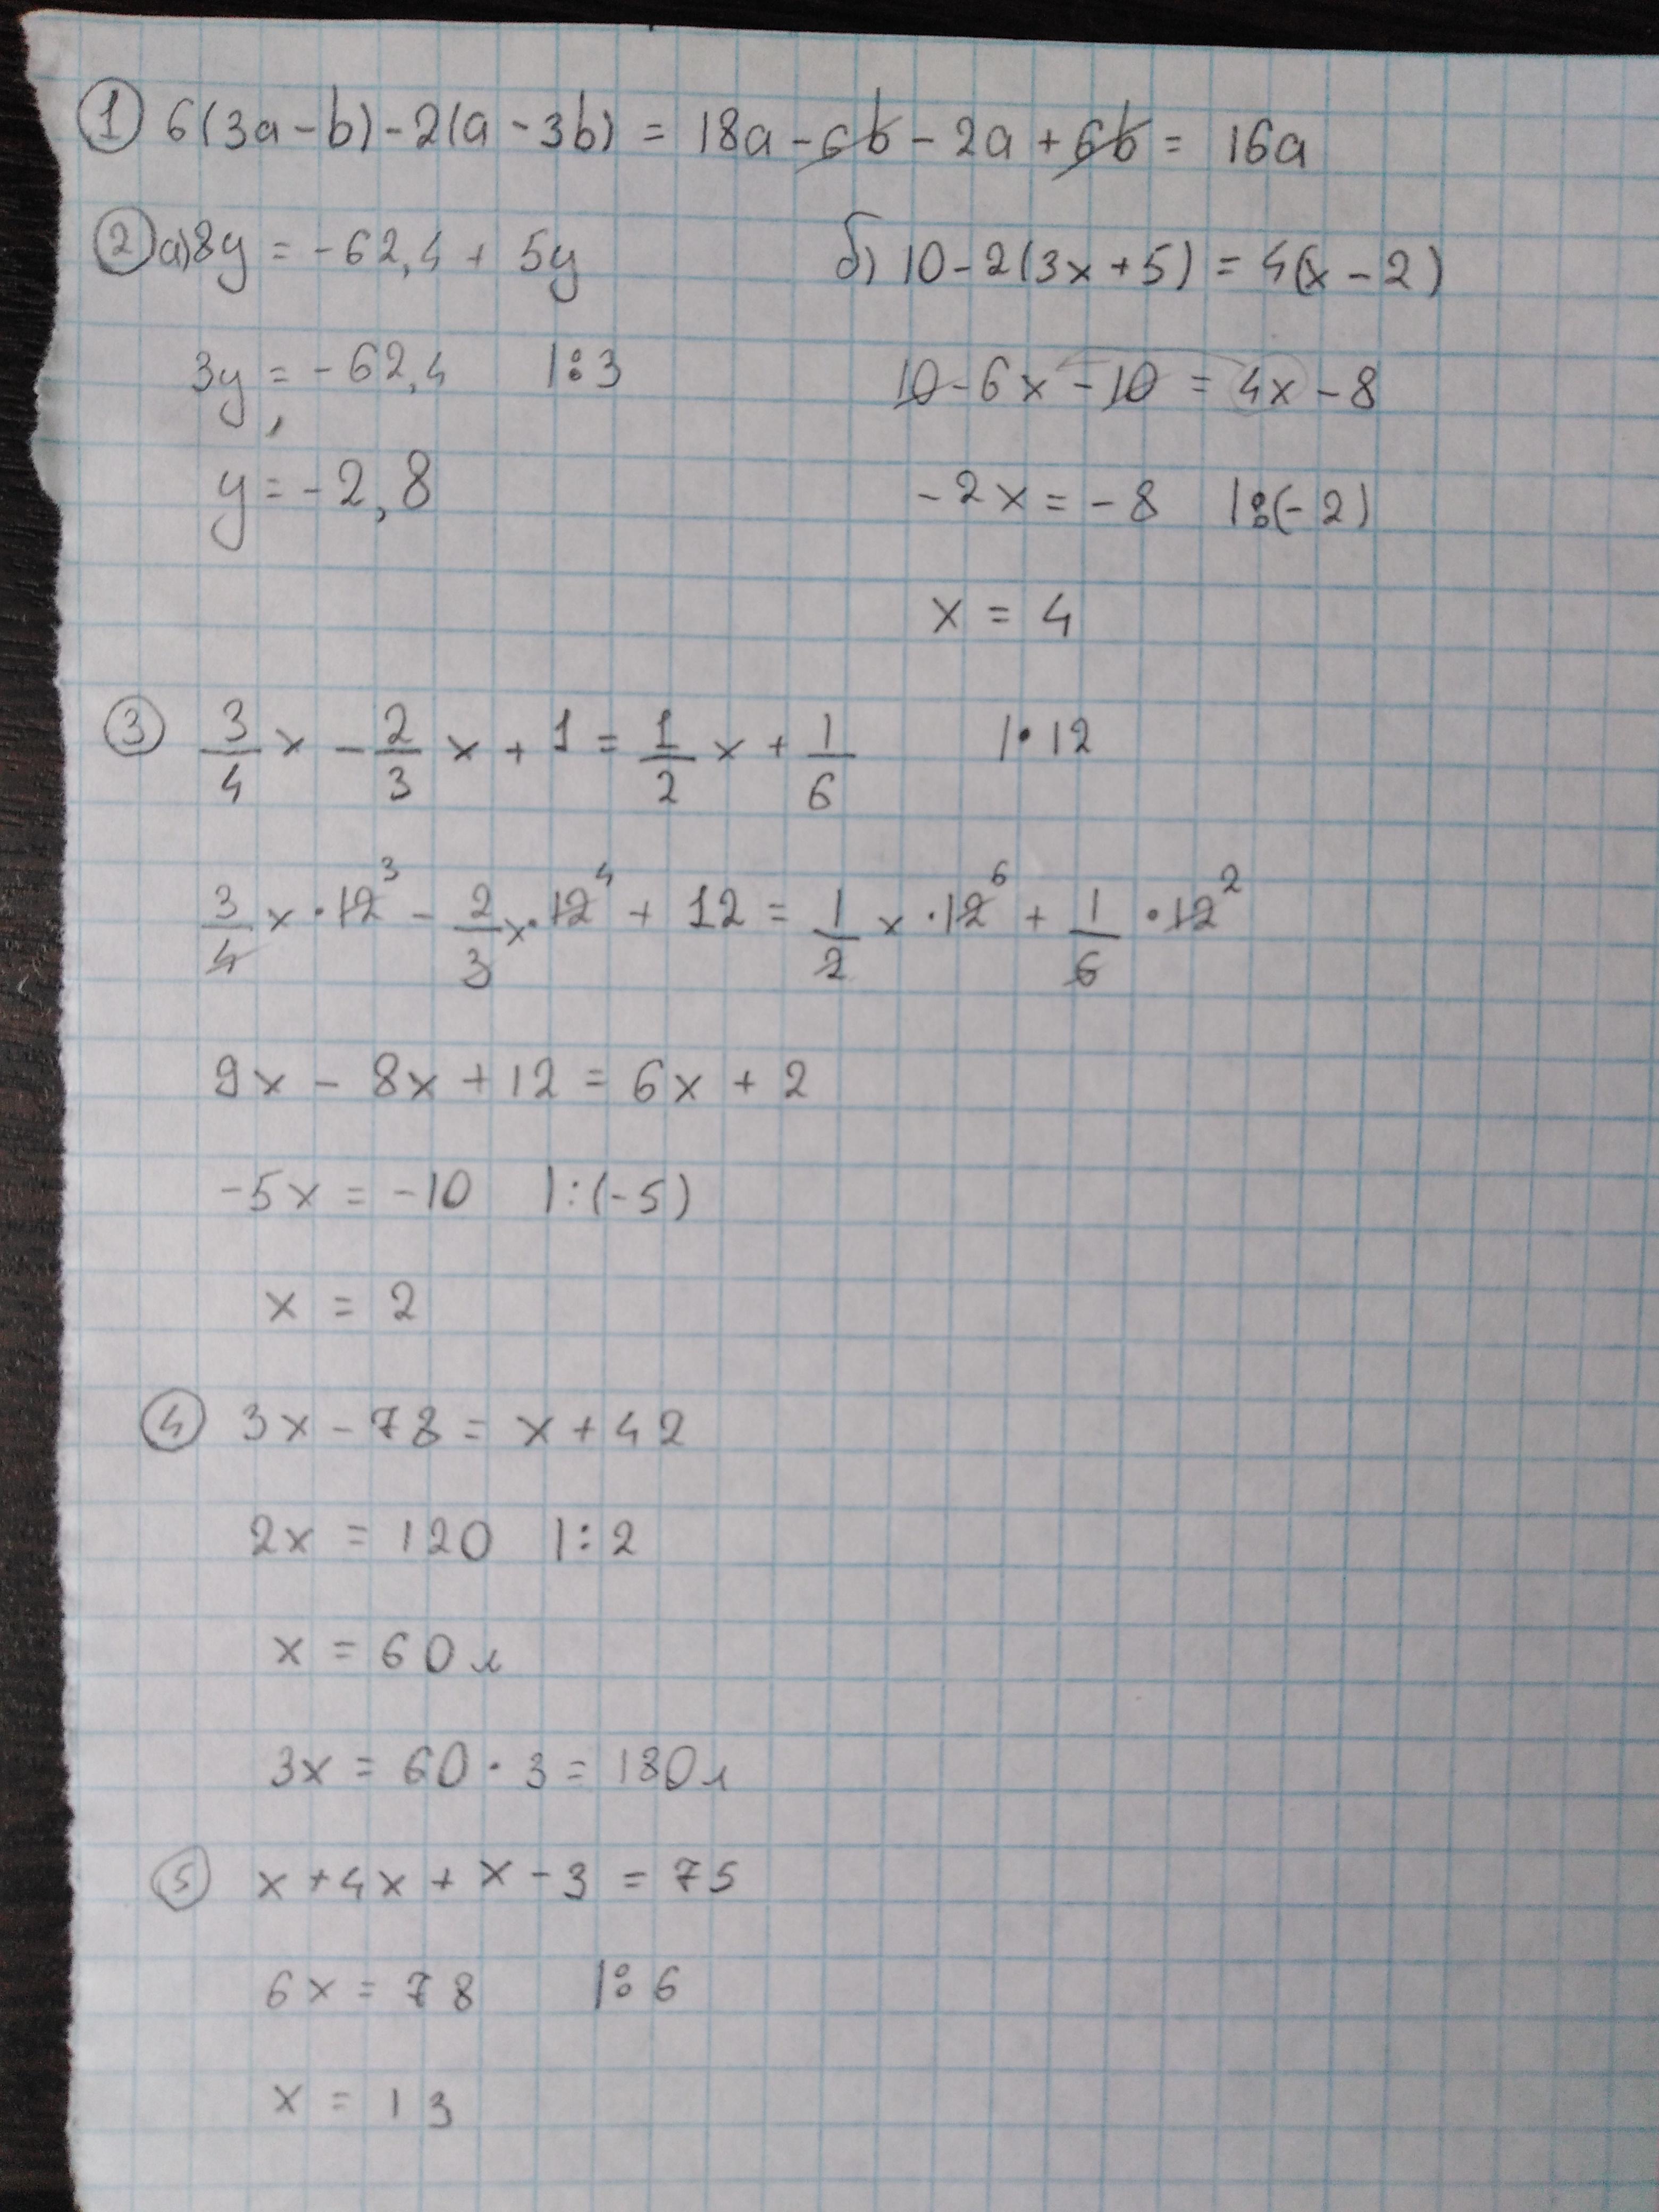 ① 6(3a-b)-2(a-3b) = 18a-6b-2a+6b = 16a
② а) 8y = -62,4 + 5y
3y = -62,4 |:3
y = -2,8
б) 10-2(3x+5) = 4(x-2)
10-6x-10 = 4x-8
-2x = -8 |:(-2)
x = 4
③ 3/4 x - 2/3 x + 1 = 1/2 x + 1/6 |·12
3/4 x·12³ - 2/3 x·12⁴ + 12 = 1/2 x·12⁶ + 1/6·12²
9x - 8x + 12 = 6x + 2
-5x = -10 |:(-5)
x = 2
④ 3x - 78 = x + 42
2x = 120 |:2
x = 60 л
3x = 60·3 = 180 л
⑤ x + 4x + x - 3 = 75
6x = 78 |:6
x = 13